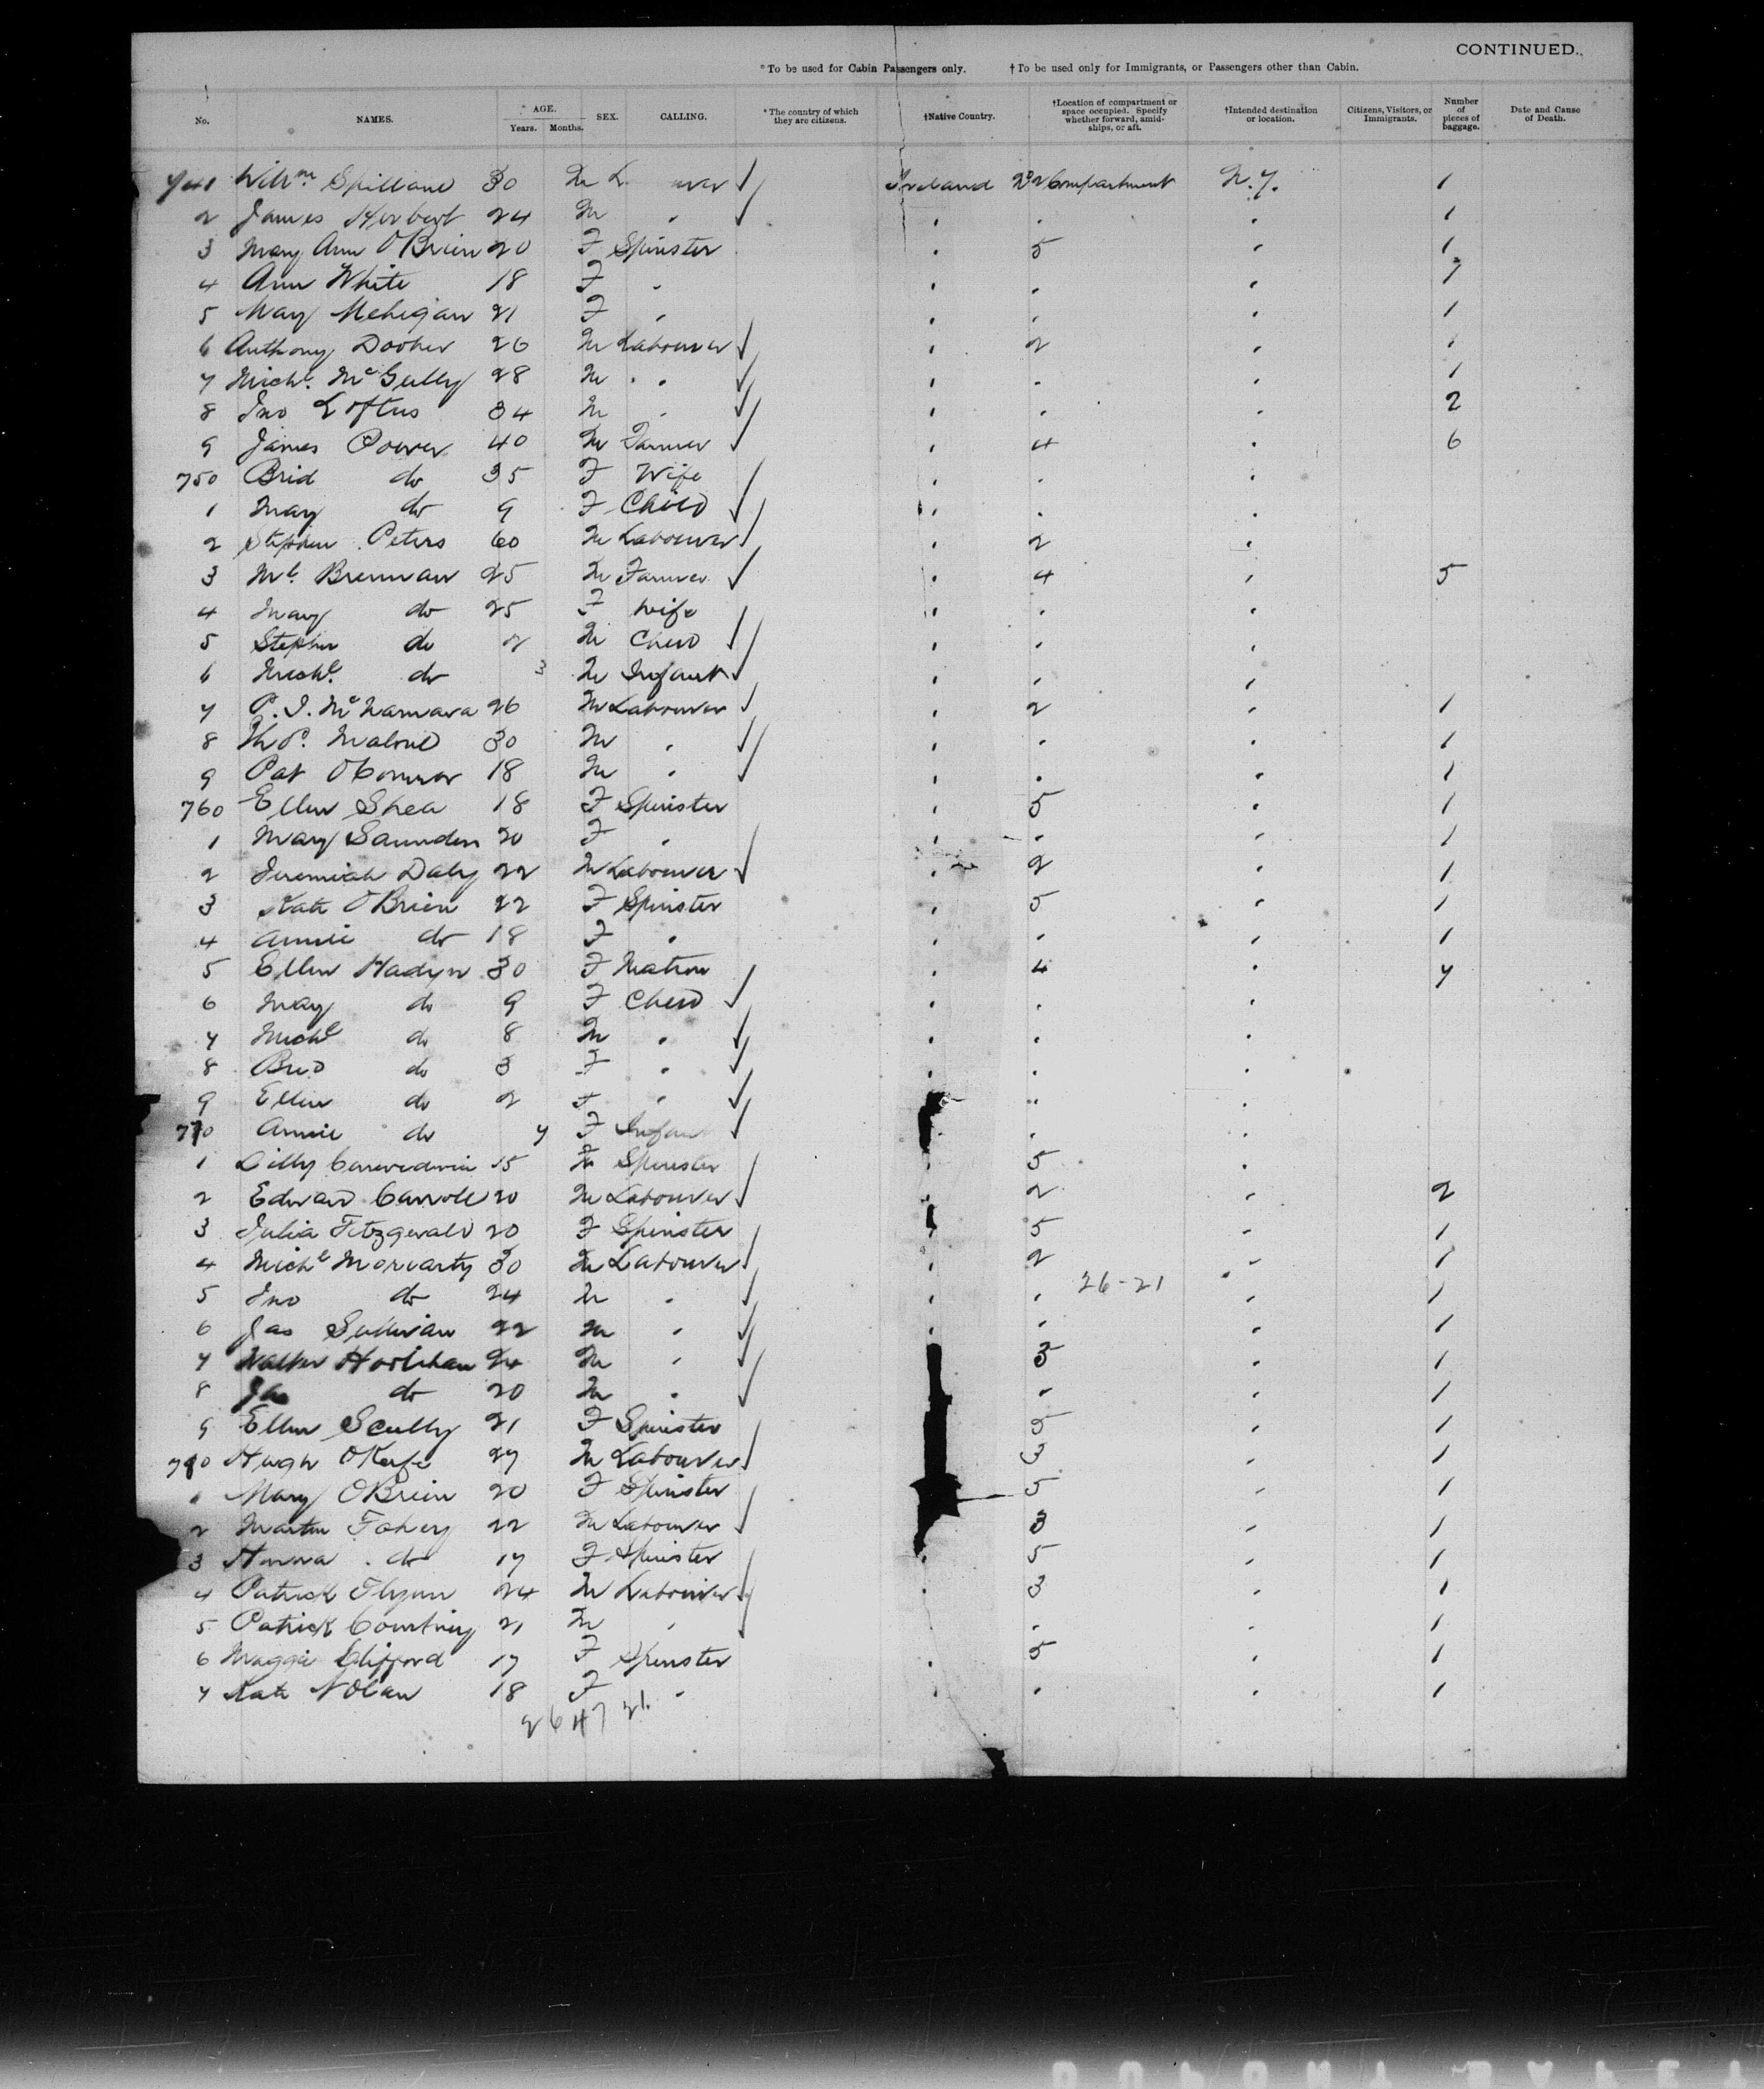 CONTINUED.
*To be used for Cabin Passengers only. †To be used only for Immigrants, or Passengers other than Cabin.
No. NAMES. AGE. Years. Months. SEX. CALLING. *The country of which they are citizens. †Native Country. †Location of compartment or space occupied. Specify whether forward, amidships, or aft. †Intended destination or location. Citizens, Visitors, or Immigrants. Number of pieces of baggage. Date and Cause of Death.
741 Willm Spillane 30 M Ireland No 2 Compartment N.Y. 1
2 James Herbert 24 M " " " " 1
3 Mary Ann OBrien 20 F Spinster " 5 " 1
4 Ann White 18 F " " " " 1
5 May Mehigan 21 F " " " " 1
6 Anthony Dooher 26 M Labourer " 2 " 1
7 Michl McGully 28 M " " " " 1
8 Jno Loftus 34 M " " " " 2
9 James Power 40 M Farmer " 4 " 6
750 Brid do 35 F Wife " " "
1 May do 9 F Child " " "
2 Stephen Peters 60 M Labourer " 2 "
3 Ml Brennan 25 M Farmer " 4 " 5
4 Mary do 25 F Wife " " "
5 Stephen do 2 M Child " " "
6 Michl do 3 M Infant " " "
7 P. J. McNamara 26 M Labourer " 2 " 1
8 Thos. Malone 30 M " " " " 1
9 Pat OConnor 18 M " " " " 1
760 Ellen Shea 18 F Spinster " 5 " 1
1 Mary Saunders 20 F " " " " 1
2 Jeremiah Daly 22 M Labourer " 2 " 1
3 Kate OBrien 22 F Spinster " 5 " 1
4 Annie do 18 F " " " " 1
5 Ellen Hadyn 30 F Matron " 4 " 7
6 May do 9 F Child " " "
7 Michl do 8 M " " " "
8 Brid do 3 F " " " "
9 Ellen do 2 F " " " "
770 Annie do 7 F Infant " "
1 15 F Spinster " 5 "
2 Edward Carroll 20 M Labourer 2 " 2
3 Julia Fitzgerald 20 F Spinster " 5 " 1
4 Michl Moriarty 30 M Labourer " 2 " 1
5 Jno do 24 M " " " 26-21 " 1
6 Jas Sullivan 22 M " " " " 1
7 Walter Hoolihan 24 M " 3 " 1
8 do 20 M " " " 1
9 Ellen Scully 21 F Spinster 5 " 1
780 Hugh OKeefe 27 M Labourer 3 " 1
1 Mary OBrien 20 F Spinster 5 " 1
2 Martin Fahey 22 M Labourer 3 " 1
3 Hanna do 17 F Spinster " 5 " 1
4 Patrick Flynn 24 M Labourer " 3 " 1
5 Patrick Courtney 21 M " " " 1
6 Maggie Clifford 17 F Spinster " 5 " 1
7 Kate Nolan 18 F " " " " 1